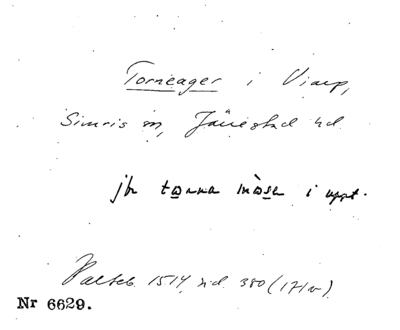 Torneager i Viarp,
Simris sn, Järrestad hd.
jfr tɷrna mòsa i uppt.
Palteb. 1514, hd. 380 (171v).
Nr 6629.